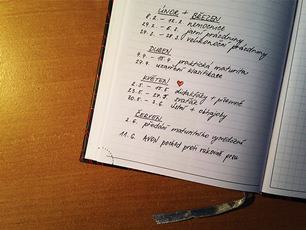 ÚNOR + BŘEZEN
8.2. - 12.2. nemocnice
29.2. - 6.3. jarní prázdniny
24.3. - 28.3. velikonoční prázdniny
DUBEN
4.4. - 15.4. praktická maturita
27.4. uzavření klasifikace
KVĚTEN
2.5. - 17.5. didakťáky + písemné
23.5. - 27.5. svaťák
30.5. - 3.6. ústní + obhajoby
ČERVEN
2.6. předání maturitního vysvědčení
11.6. AVON pochod proti rakovině prsu